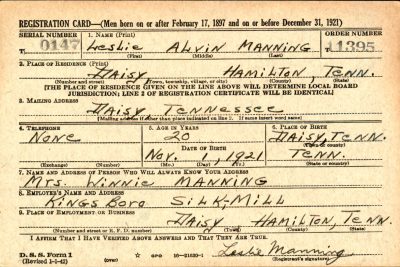 REGISTRATION CARD—(Men born on or after February 17, 1897 and on or before December 31, 1921)
SERIAL NUMBER 1. NAME (Print) ORDER NUMBER
0147 Leslie ALVIN MANNING 11395
(First) (Middle) (Last)
2. PLACE OF RESIDENCE (Print)
DAISY HAMILTON, TENN.
(Number and street) (Town, township, village, or city) (County) (State)
[THE PLACE OF RESIDENCE GIVEN ON THE LINE ABOVE WILL DETERMINE LOCAL BOARD
JURISDICTION; LINE 2 OF REGISTRATION CERTIFICATE WILL BE IDENTICAL]
3. MAILING ADDRESS
DAISY TENNESSEE
[Mailing address if other than place indicated on line 2. If same insert word same]
4. TELEPHONE 5. AGE IN YEARS 6. PLACE OF BIRTH
NONE 20 DAISY, TENN.
DATE OF BIRTH (Town or county)
NOV. 1, 1921 TENN.
(Exchange) (Number) (Mo.) (Day) (Yr.) (State or country)
7. NAME AND ADDRESS OF PERSON WHO WILL ALWAYS KNOW YOUR ADDRESS
MRS. WINNIE MANNING
8. EMPLOYER'S NAME AND ADDRESS
KINGS BORO SILK-MILL
9. PLACE OF EMPLOYMENT OR BUSINESS
DAISY HAMILTON, TENN.
(Number and street or R. F. D. number) (Town) (County) (State)
I AFFIRM THAT I HAVE VERIFIED ABOVE ANSWERS AND THAT THEY ARE TRUE.
D. S. S. Form 1 GPO 16-21630-1 Leslie Manning
(Revised 1-1-42) (Registrant's signature)